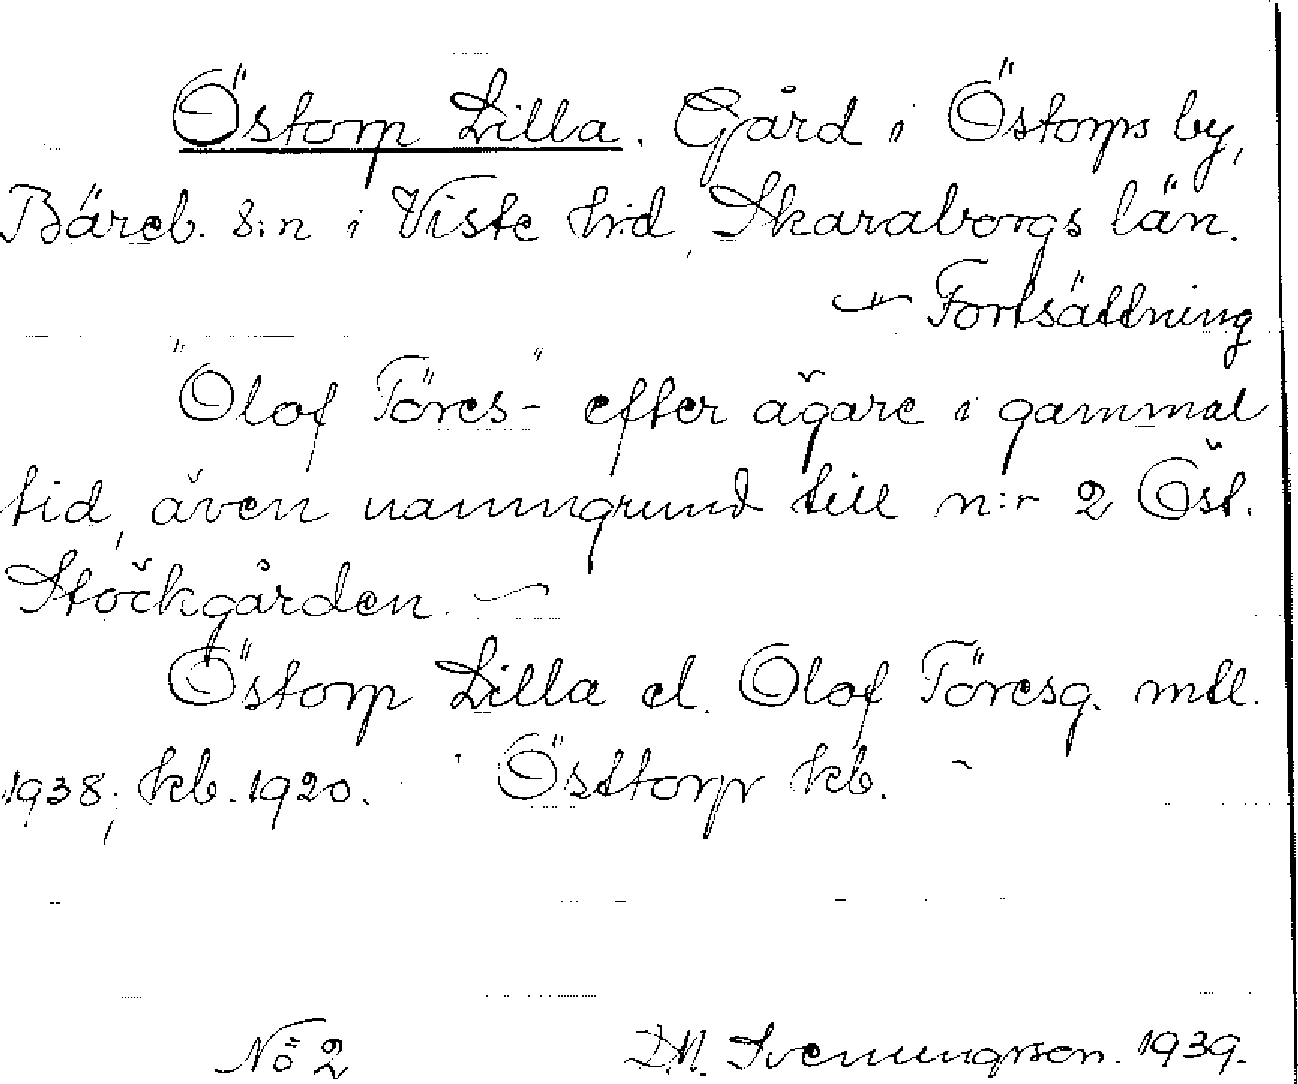 Östorp Lilla. Gård i Östorps by,
Bäreb. s:n i Viste hd, Skaraborgs län.
~ Fortsättning
"Olof Töres-" efter ägare i gammal
tid, även namngrund till n:r 2 Öst.
Stöckgården. ~
Östorp Lilla el. Olof Töresg. mtl.
1938; kb. 1920. Östtorp kb. ~
No 2 D.N. Svenungsson. 1939.